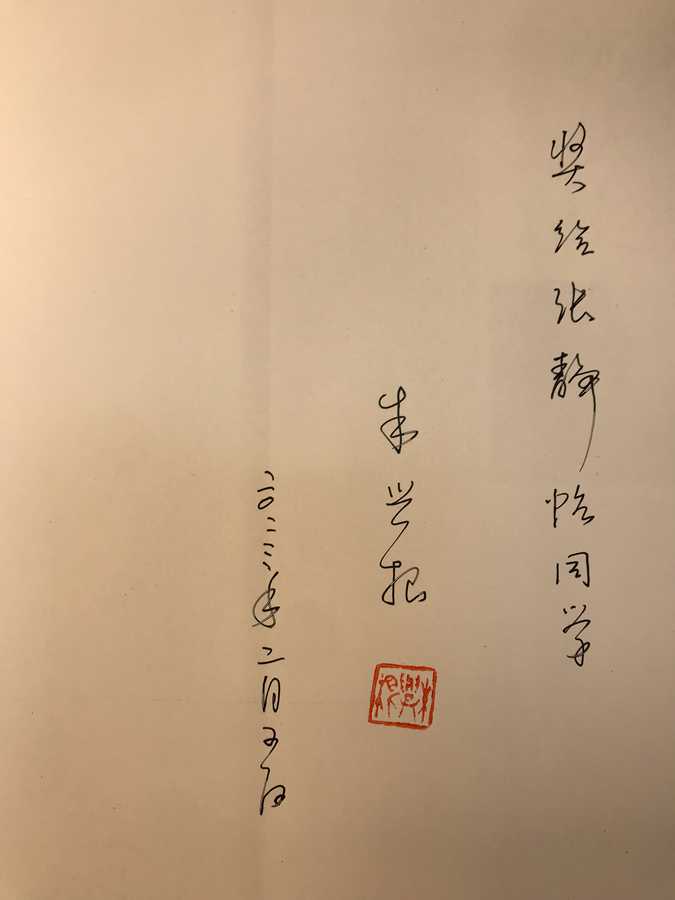 奖给张静怡同学
朱兴根
二〇二三年二月五日